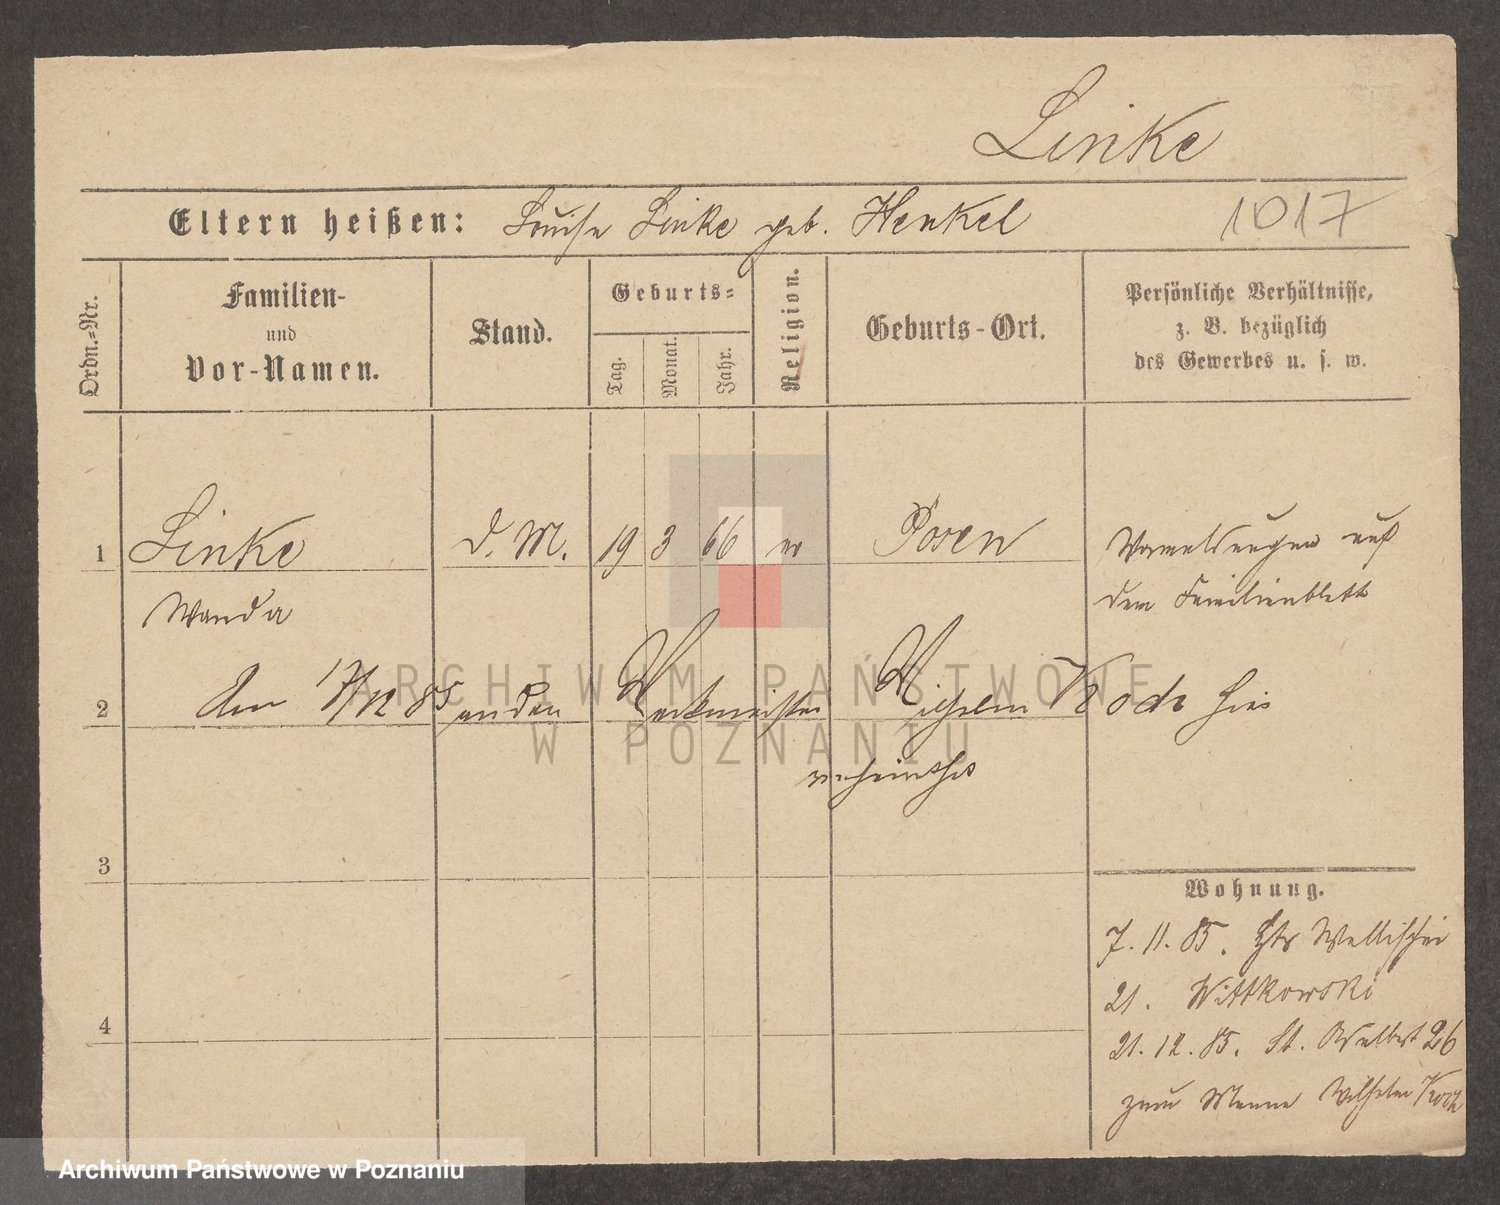 Linke
Eltern heißen: Louise Linke geb. Henkel
1017
Ordn.-Nr.
Familien-
und
Vor-Namen.
Stand.
Geburts-
Tag.
Monat.
Jahr.
Religion.
Geburts-Ort.
Persönliche Verhältnisse,
z. B. bezüglich
des Gewerbes u. s. w.
1 Linke d. M. 19 3 66 ev Posen
Wanda
Vormeldungen auf
dem Familienblatt
2 Am 17/12 85 an den Werkmeister Wilhelm hier
verheirathet
3
4
Wohnung.
7. 11. 85. Wallischei
21. Wittkowski
21. 12. 85. St. Adalbert 26
zum Manne Wilhelm
ARCHIWUM PAŃSTWOWE
W POZNANIU
Archiwum Państwowe w Poznaniu